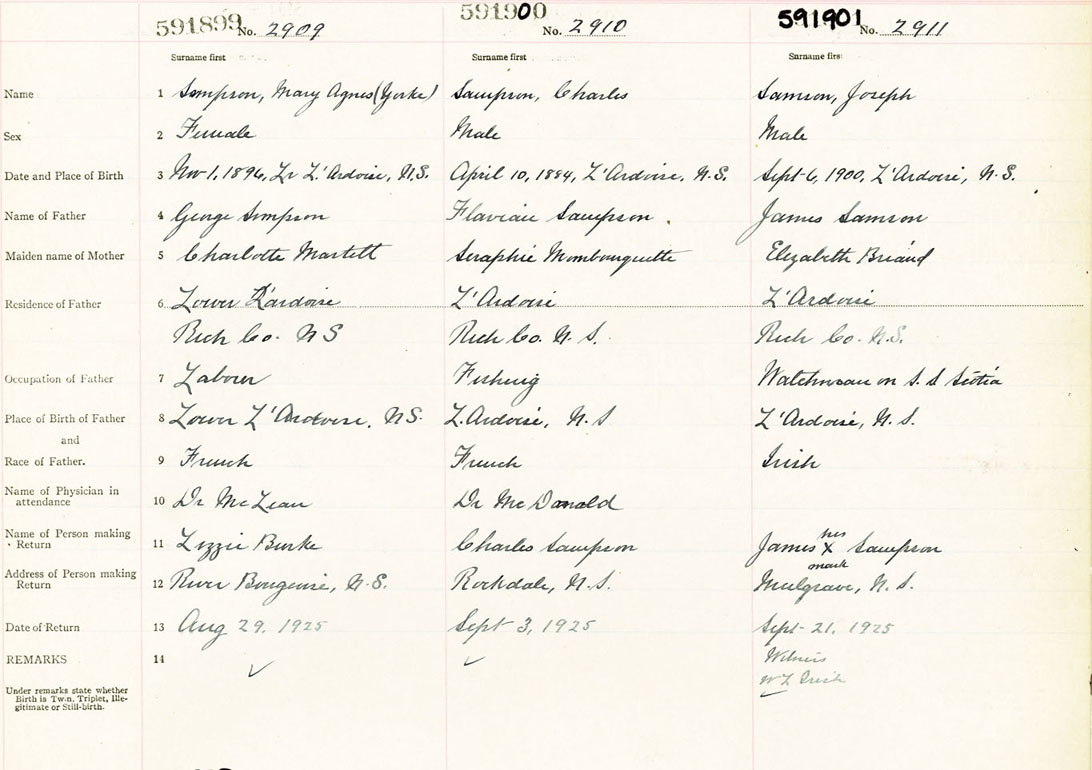 591899 No. 2909 591900 No. 2910 591901 No. 2911
Surname first Surname first Surname first
Name 1 Sampson, Mary Agnes (Yorke) Sampson, Charles Samson, Joseph
Sex 2 Female Male Male
Date and Place of Birth 3 Nov 1, 1896, Lr L'Ardoise, N.S. April 10, 1884, L'Ardoise, N.S. Sept 6, 1900, L'Ardoise, N.S.
Name of Father 4 George Sampson Flavian Sampson James Samson
Maiden name of Mother 5 Charlotte Martell Seraphie Mombourquette Elizabeth Briand
Residence of Father 6 Lower L'ardoise L'Ardoise L'Ardoise
Rich Co. NS Rich Co. N.S. Rich Co. N.S.
Occupation of Father 7 Laborer Fishing Watchman on S.S Scotia
Place of Birth of Father 8 Lower L'Ardoise, NS. L.Ardoise, N.S L'Ardoise, N.S.
and
Race of Father. 9 French French Irish
Name of Physician in attendance 10 Dr McLean Dr McDonald
his
Name of Person making Return 11 Lizzie Burke Charles Sampson James X Sampson
mark
Address of Person making Return 12 River Bourgeoise, N.S. Rockdale, N.S. Mulgrave, N.S.
Date of Return 13 Aug 29, 1925 Sept 3, 1925 Sept 21, 1925
REMARKS 14 ✓ ✓ Witness
W L Irish
✓
Under remarks state whether
Birth is Twin, Triplet, Ille-
gitimate or Still-birth.